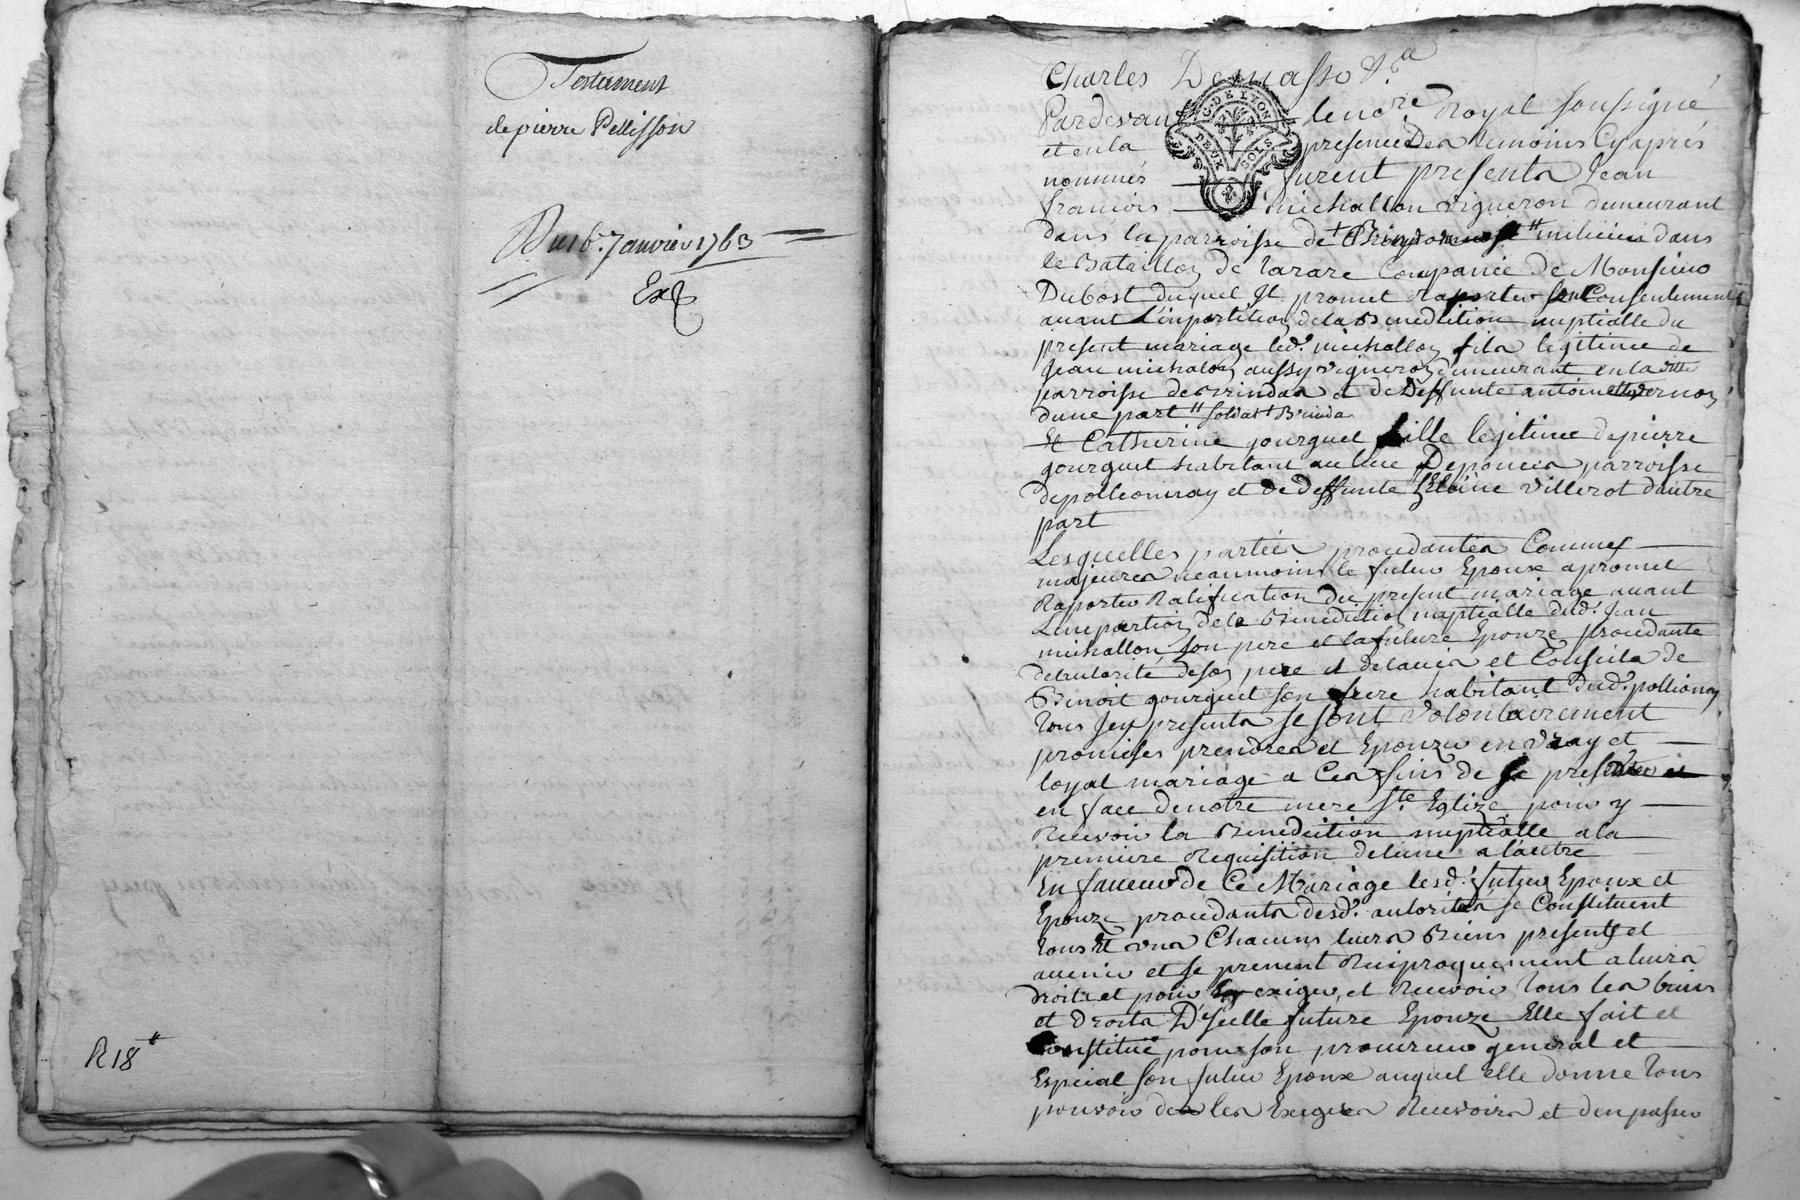 Testament
de pierre Pellisson
Du 16e Janvier 1763
Exp
R 18 tt
Charles Demasso &ca
Pardevant le no.re Royal soussigné
et en la presence Des temoins Cy aprés
nommés furent presents Jean
francois michallon vigneron demeurant
dans la parroisse de milicien dans
le Bataillon de tarare Companiée de Monsieur
Dubost duquel Il promet Raporter son Consentement
avant L'inpartition de la Benediction nuptialle du
present mariage led.t michallon fils legitime de
Jean michalon aussy vigneron demeurant en la ditte
parroisse de Brindas et de Deffunte antoinette vernon
dune part tt soldat t Brinda
Et Catherine gourguet fille legitime de pierre
gourguet habitant au lieu De poncer parroisse
de pollionnay et de deffunte villerot dautre
part
Lesquelles parties procedantes Comme
majeures neanmoins le futur Epoux a promet
Raporter Ratification du present mariage avant
L'inpartion de la Benediction nuptialle dud.t Jean
michallon son pere et la future Epouze procedante
de l'autorité de son pere et de lavis et Conseils de
Benoit gourguet son frere habitant dud.t pollionay
tous Icy presents se sont volontairement
promises prendres et Epouzer en vray et
loyal mariage a Ces fins de se presenter
en face de notre mere Ste Eglize pour y
Recevoir la Benediction nuptialle a la
premiere Requisition de lune a lautre
En faveur de Ce Mariage lesd.t futur Epoux et
Epouze procedants desd.t autorités se Constituent
tous et uns Chacuns leurs Biens presents et
avenir et se prenent Reciproquement a leurs
droits et pour exiger et Recevoir tous les biens
et droits D'Icelle future Epouze Elle fait et
Constitué pour son procureur general et
Especial son futur Epoux auquel elle donne tous
pouvoir de les Exiger Recevoirs et den passer